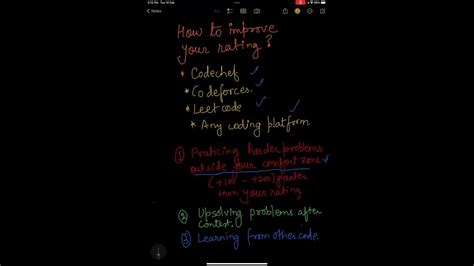 Notes
How to improve
your rating?
* Codechef
* Codeforces.
* Leetcode
* Any coding platform
① Praticing harder problems
outside your comfort zone.
(+100 - +200) greater
than your rating
② Upsolving problems after
contest.
③ Learning from other code.